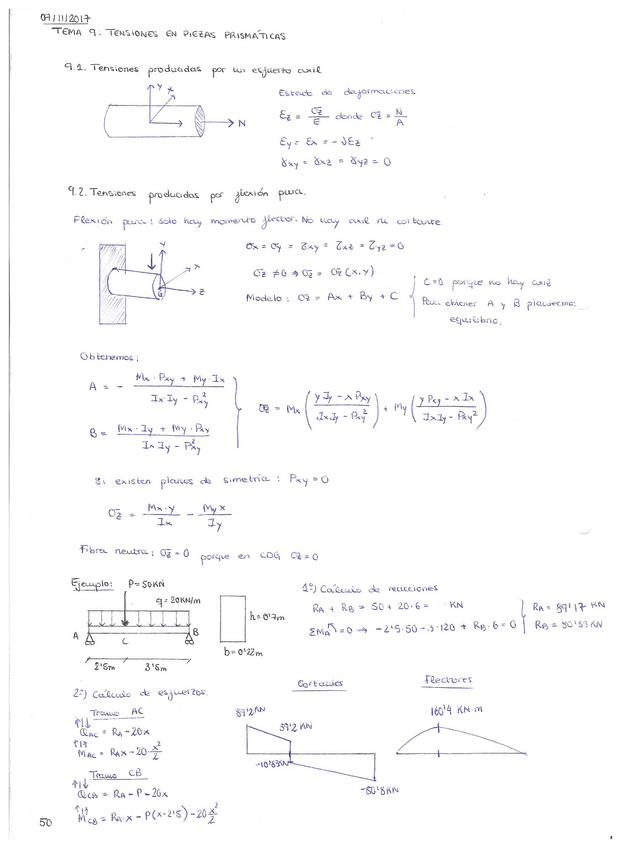 07/11/2017
TEMA 9. TENSIONES EN PIEZAS PRISMÁTICAS
9.1. Tensiones producidas por un esfuerzo axil
Y X
N
Estado de deformaciones
εz = σz/E donde σz = N/A
εy = εx = -νεz
γxy = γxz = γyz = 0
9.2. Tensiones producidas por flexión pura.
Flexión pura: solo hay momento flector. No hay axil ni cortante
Y
X
G
Z
σx = σy = τxy = τxz = τyz = 0
σz ≠ 0 ⇒ σz = σz (x,y)
Modelo: σz = Ax + By + C
C=0 porque no hay axil
Para obtener A y B planteamos
equilibrio.
Obtenemos:
A = - (Mx·Pxy + My·Ix)/(Ix·Iy - Pxy²)
B = (Mx·Iy + My·Pxy)/(Ix Iy - Pxy²)
σz = Mx ((y Iy - x Pxy)/(Ix Iy - Pxy²)) + My ((y Pxy - x Ix)/(Ix Iy - Pxy²))
Si existen planos de simetría: Pxy = 0
σz = Mx·y/Ix - My x/Iy
Fibra neutra: σz = 0 porque en CDG σz = 0
Ejemplo:
P = 50KN
q = 20KN/m
A
C
B
2'5m
3'5m
h=0'7m
b=0'22m
1º) Cálculo de reacciones
RA + RB = 50 + 20·6 = KN
ΣMA = 0 → -2'5·50 - 3·120 + RB·6 = 0
RA = 89'17 KN
RB = 80'83 KN
2º) Cálculo de esfuerzos.
Tramo AC
QAC = RA - 20x
MAC = RAx - 20·x²/2
Tramo CB
QCB = RA - P - 20x
MCB = RA·x - P(x-2'5) - 20 x²/2
Cortantes
89'2 KN
39'2 KN
-10'83KN
-80'8KN
Flectores
160'4 KN·m
50